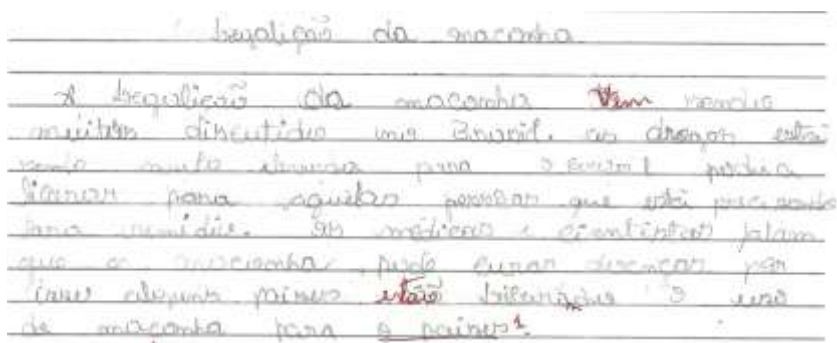 legalição da maconha
A legalição da maconha Vem sendo
muitos discutido no Brasil. as drogas está
sendo muito para o Brasil podia
liberar para aquelas pessoas que está precisando
para remédio. os médicos e cientistas falam
que a maconha pode curar doenças por
isso alguns países estão liberando o uso
de maconha para o países¹.